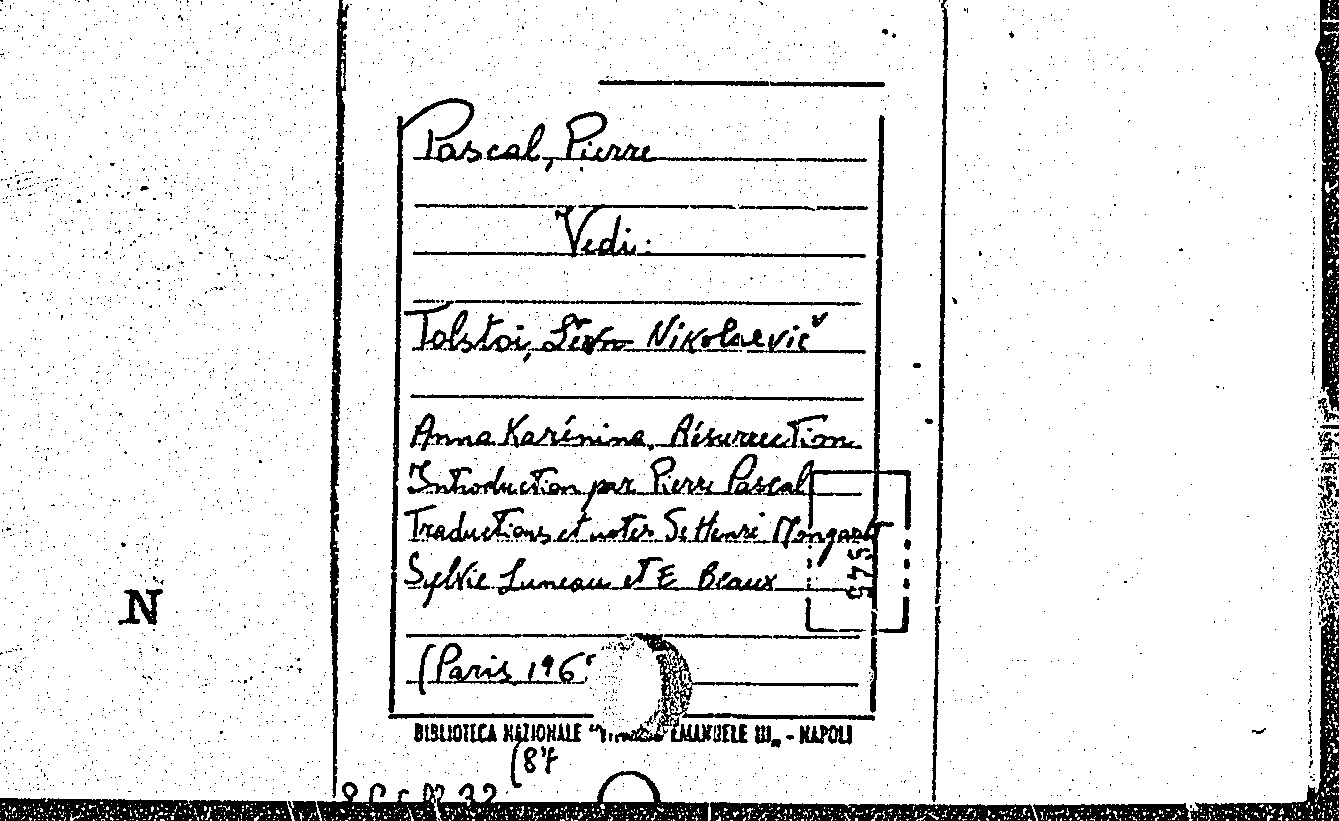 Pascal, Pierre
Vedi:
Tolstoi, Nikolaevič
Anna Karénina, Résurrection
Introduction par Pierre Pascal
Traductions et notes Henri Mongault
Sylvie Luneau et E Beaux
(Paris, 196
BIBLIOTECA NAZIONALE EMANUELE III„ - NAPOLI
N